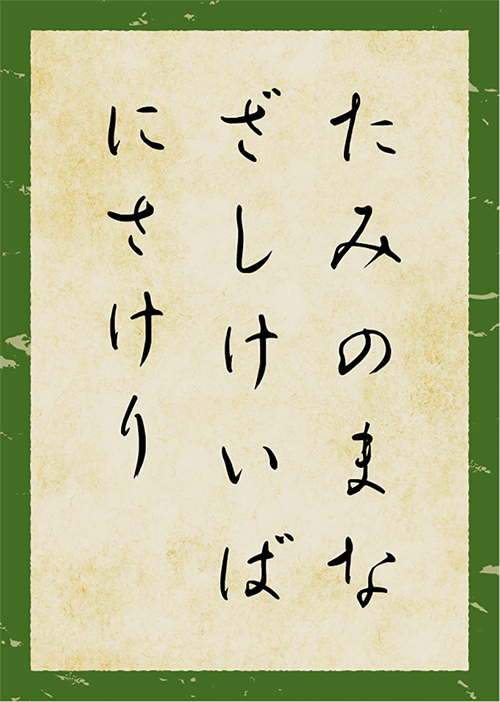 たみのまな
ざしけいば
にさけり